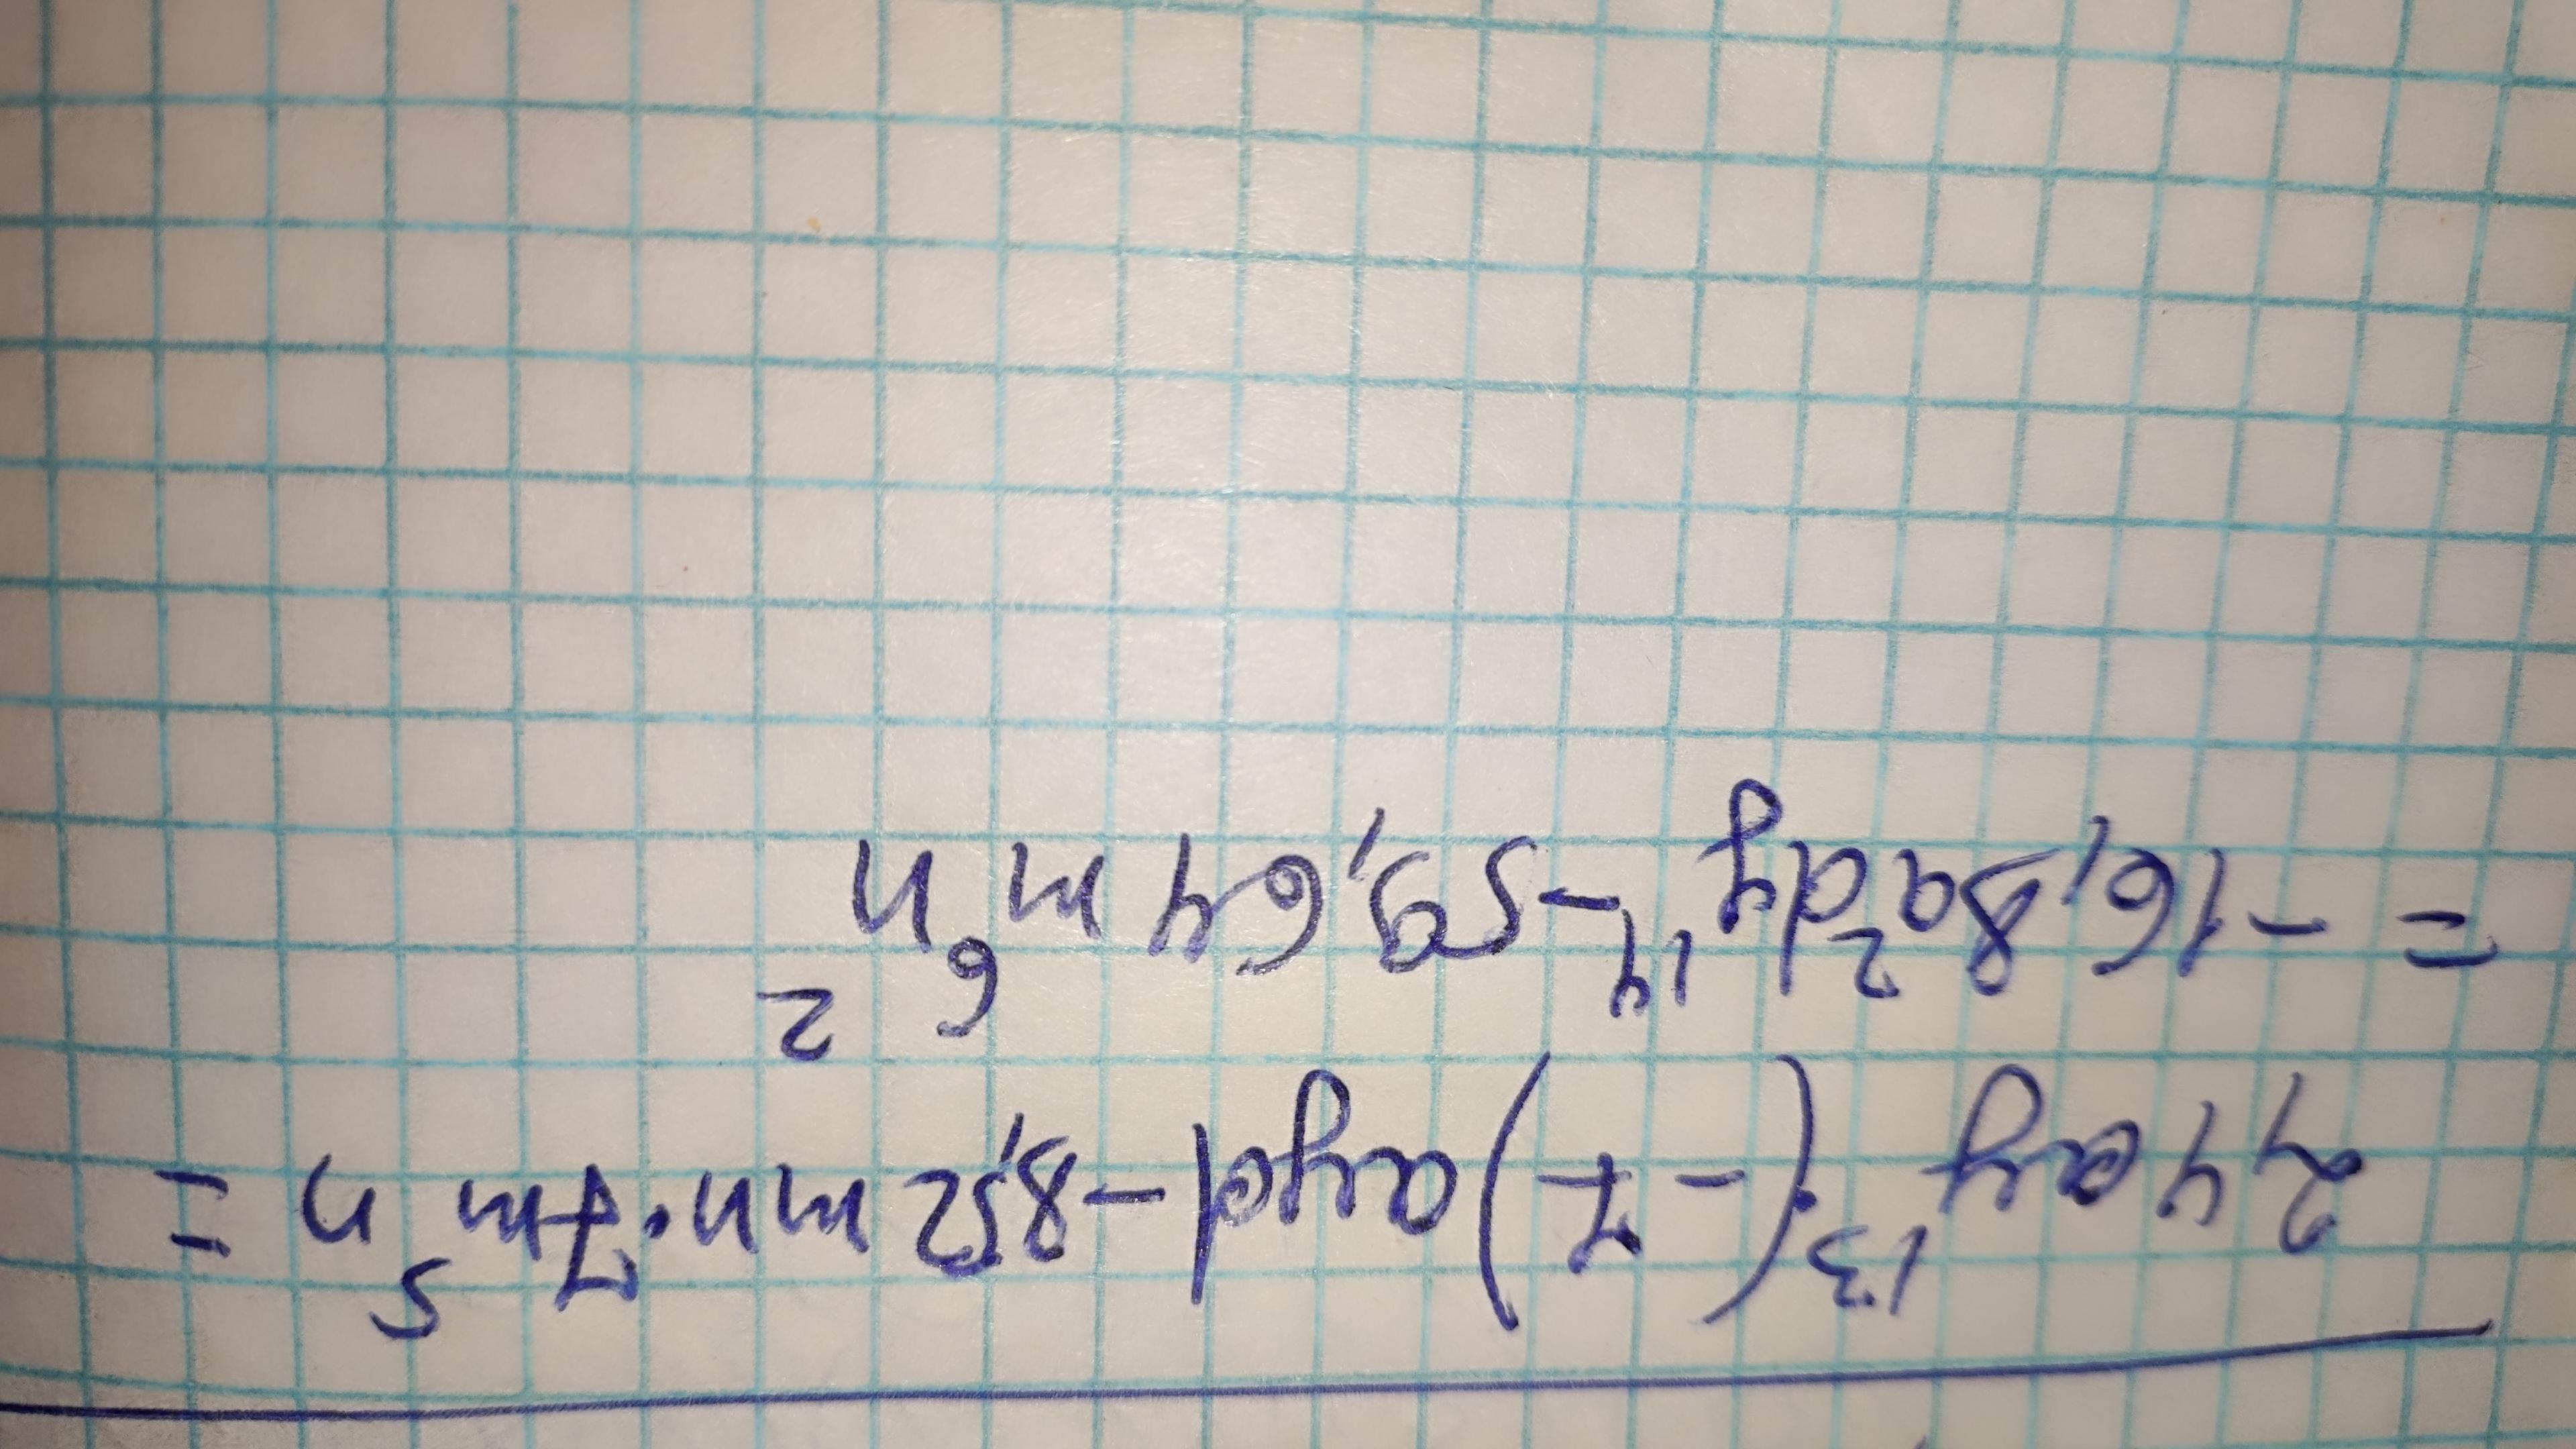 2,4ay¹³·(-7)ayd-8,52mn·7m⁵n=
=-16,8a²dy¹⁴-59,64m⁶n²